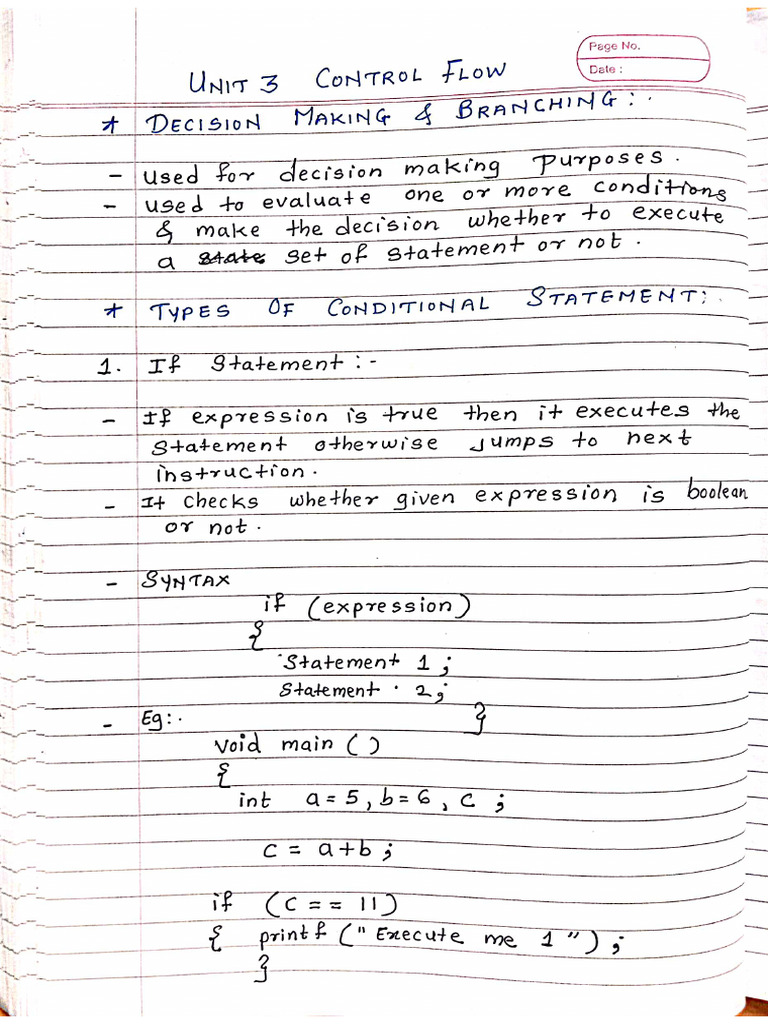 Page No.
Date :
UNIT 3 CONTROL FLOW
* DECISION MAKING & BRANCHING :.
- Used for decision making purposes.
- used to evaluate one or more conditions
& make the decision whether to execute
a state set of statement or not.
* TYPES OF CONDITIONAL STATEMENT:.
1. If Statement :-
- If expression is true then it executes the
statement otherwise jumps to next
instruction.
- It checks whether given expression is boolean
or not.
- SYNTAX
if (expression)
{
Statement 1 ;
Statement 2 ;
}
- Eg:.
void main ()
{
int a = 5, b = 6, c ;
c = a+b ;
if (c == 11)
{ printf ("Execute me 1") ;
}